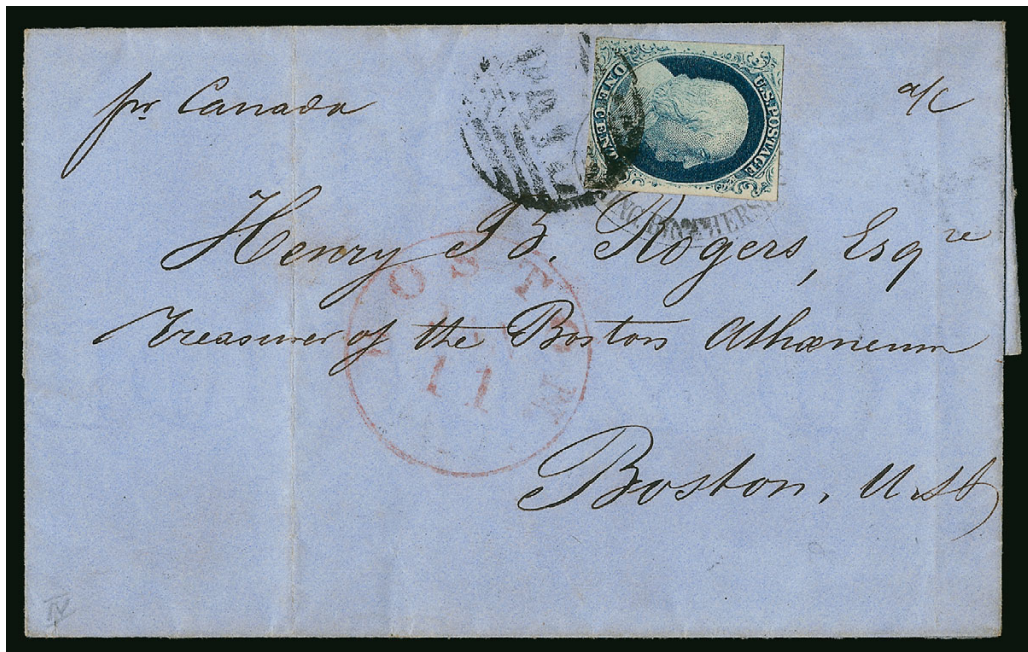 pr. Canada
a/c
PAID
U.S. POSTAGE
ONE CENT
Henry B. Rogers, Esqre
Treasurer of the Boston Athæneum
BOSTON
11
Boston, U.St
IV